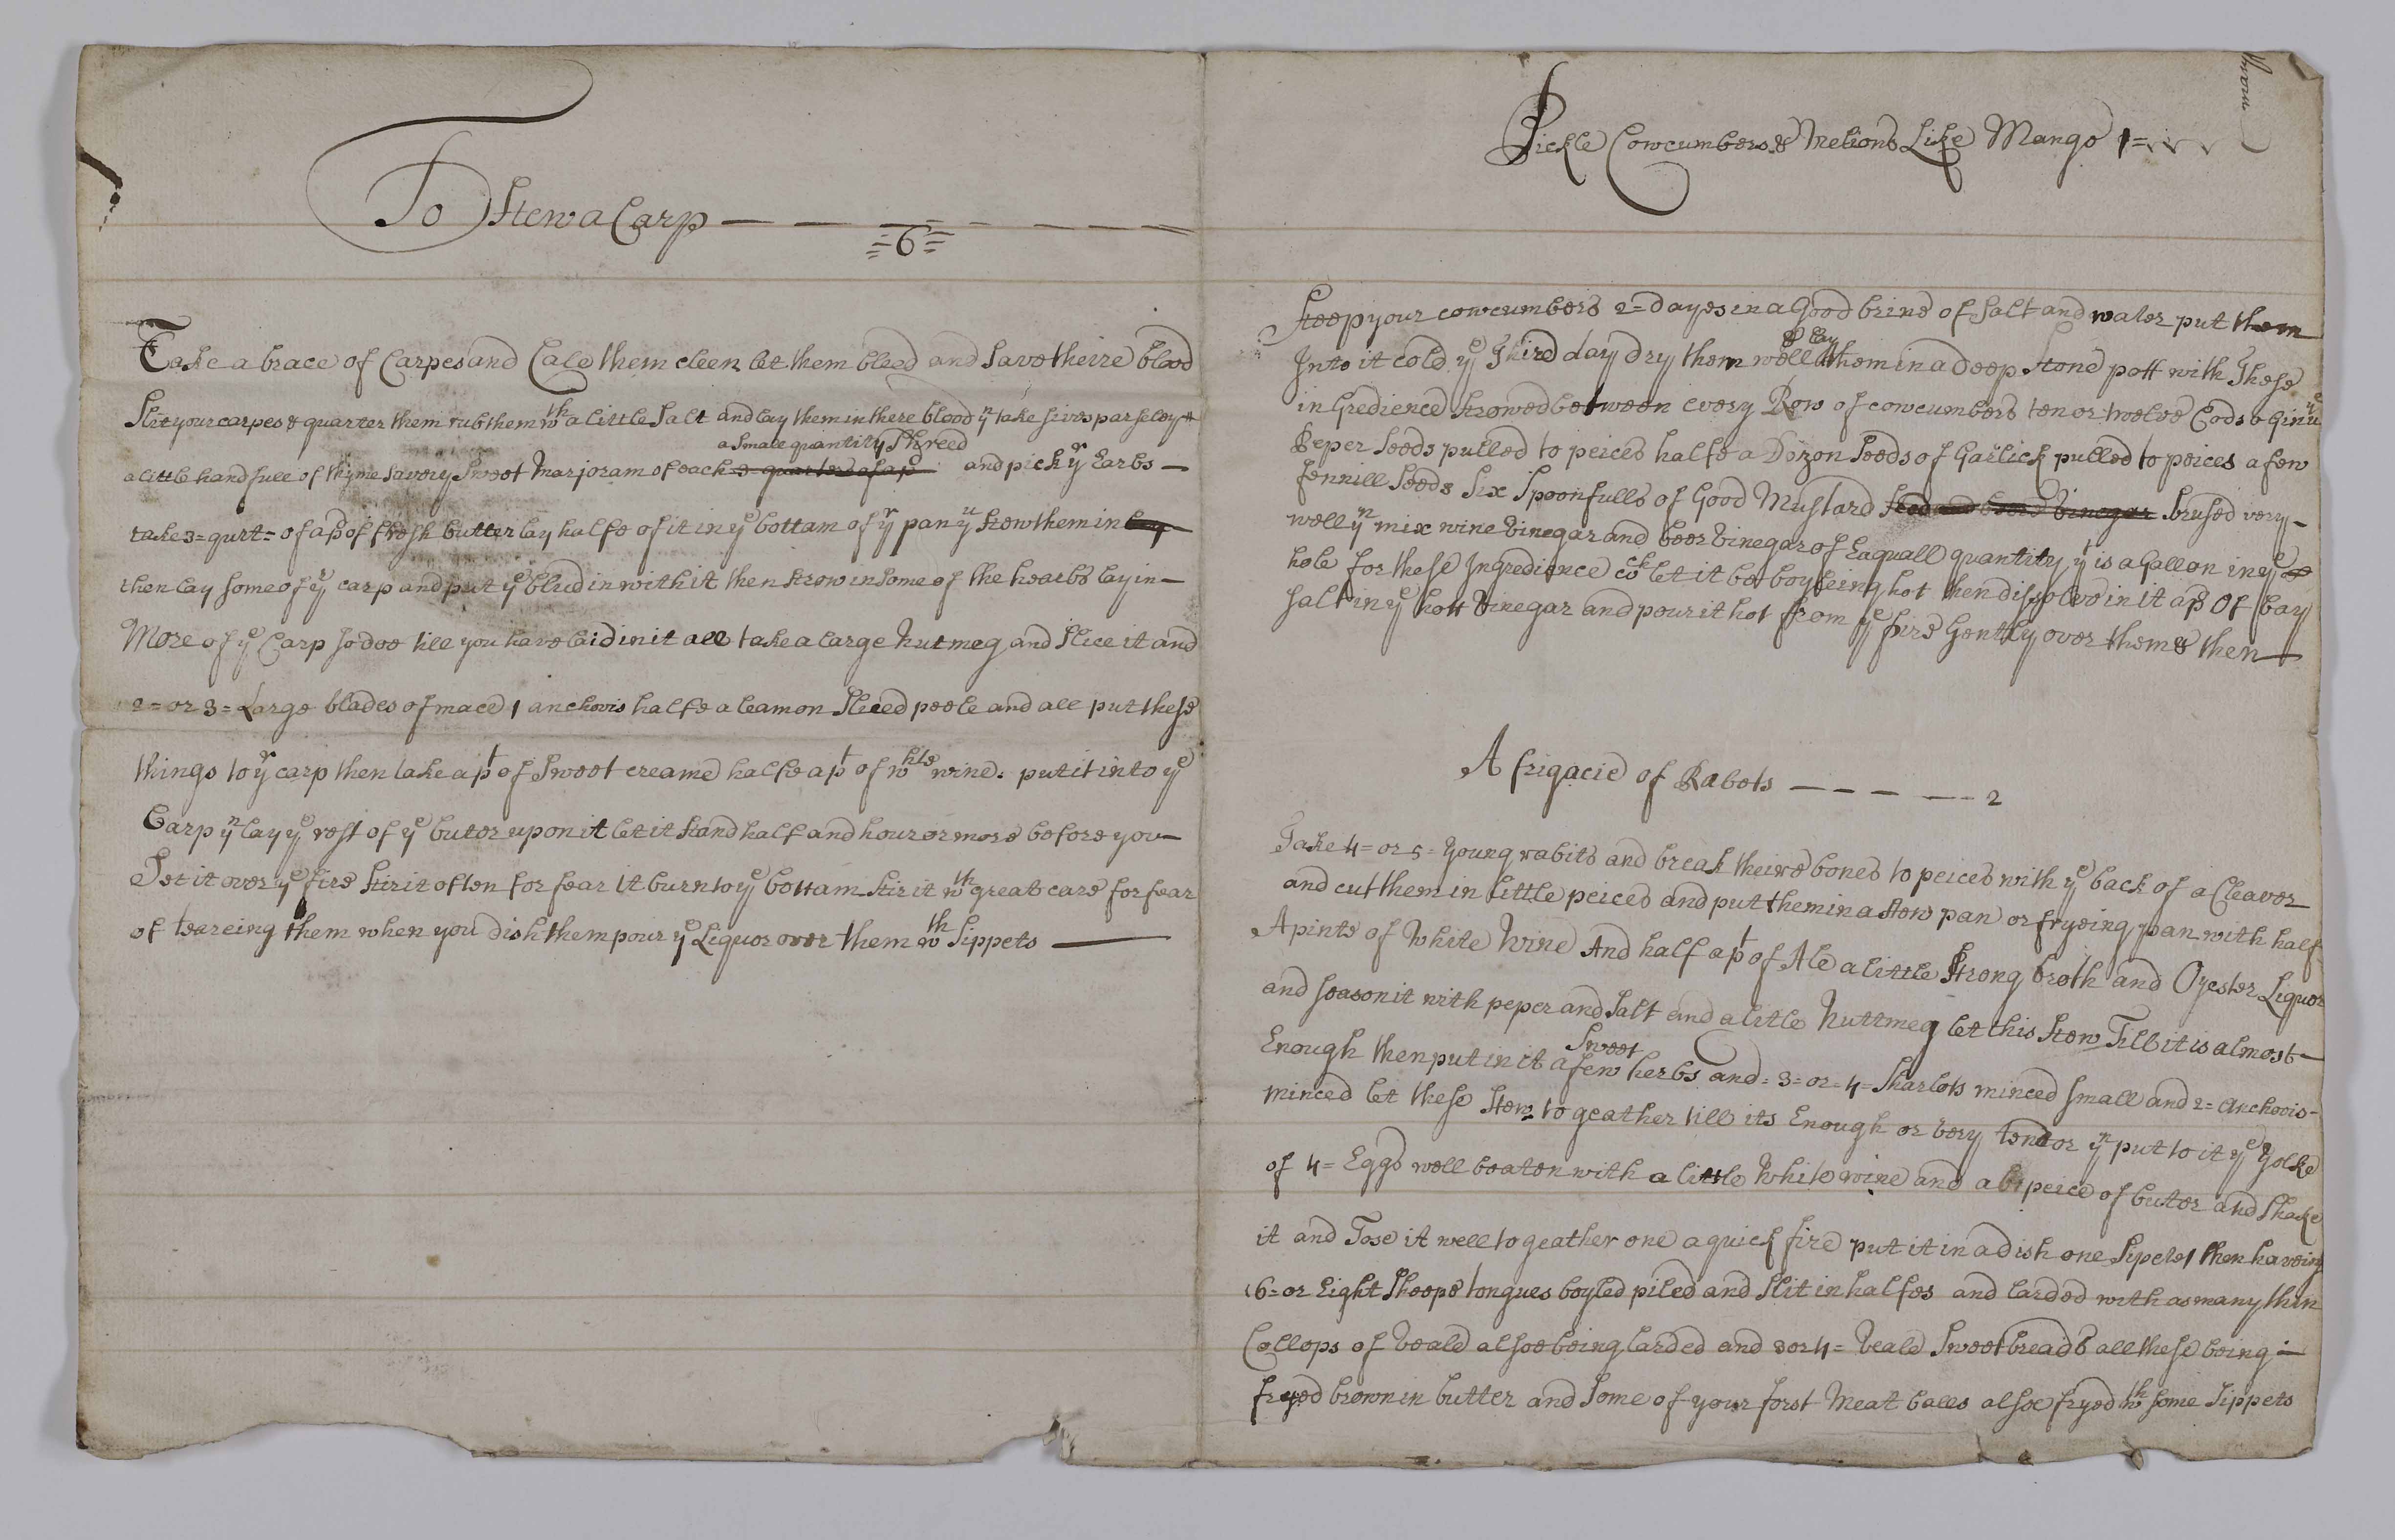 To Stew a Carp
=6=
Take a brace of Carpes and Cale them cleen let them bleed and save theire blood
Slit your carpes & quarter them rub them wth a little Salt and lay them in there blood yn take sives parseley &
a small quantity Shreed
a little handfull of thyme savory Sweet Marjoram of each 3 quarters of a p and pick yr Earbs —
take 3 = qurt = of a p of fresh butter lay halfe of it in ye bottam of yr pan yn strow them in lay
then lay some of yr carp and put ye blud in with it then strow in some of the hearbs lay in —
More of ye Carp so doe till you have laid in it all take a large Nutmeg and Slice it and
2 = or 3 = Large blades of mace 1 anchovis halfe a leamon Sliced peele and all put these
things to yr carp then take a pt of Sweet creame halfe a pt of whte wine. put it into ye
Carp yn lay ye rest of ye buter upon it let it stand half and hour or more before you —
Set it over ye fire stir it often for fear it burn to ye bottam stir it wth great care for fear
of teareing them when you dish them pour ye Liquor over them wth Sippets —
Pickle Cowcumbers & Melions Like Mango 1 =
Steep your cowcumbers 2 = dayes in a Good brine of salt and water put them
& lay
Into it cold ye Third day dry them well them in a deep Stone pott with These
in Gredience strowed between every Row of cowcumbers ten or twelve Cods o ginne
Peper Seeds pulled to peices halfe a Dozon Seeds of Garlick pulled to peices a few
fennill Seeds Six Spoonfulls of Good Mustard Seed and beere vinegar brused very —
well yn mix wine vinegar and beer vinegar of Eaquall quantity yt is a Gallon in ye
hole for these Ingredience let it be boyleing hot then dissolve in it a p of bay
salt in ye hott vinegar and pour it hot from ye fire Gently over them & then —
A frigacie of Rabets — — — — 2
Take 4 = or 5 = Young rabits and break theire bones to peices with ye back of a Cleaver
and cut them in little peices and put them in a stew pan or fryeing pan with half
A pinte of White Wine And half a pt of Ale a little Strong broth and Oyester Liquor
and season it with peper and Salt and a litle Nuttmeg let this Stew Till it is almost —
Sweet
Enough then put in it a few herbs and = 3 = or = 4 = sharlots minced small and 2 = Anchovis -
minced let these stew to geather till its Enough or very tendor yn put to it ye Yolke
of 4 = Eggs well beaten with a little White wine and a peice of buter and Shake
it and Tose it well to geather one a quick fire put it in a dish one Sipets then haveing
6 = or Eight Sheeps tongues boyled piled and Slit in halfes and larded with as many thin
Collops of veale alsoe being larded and 3 or 4 = veale Sweetbreads all these being —
fryed brown in butter and some of your forst Meat balls alsoe fryed wth some Sippets